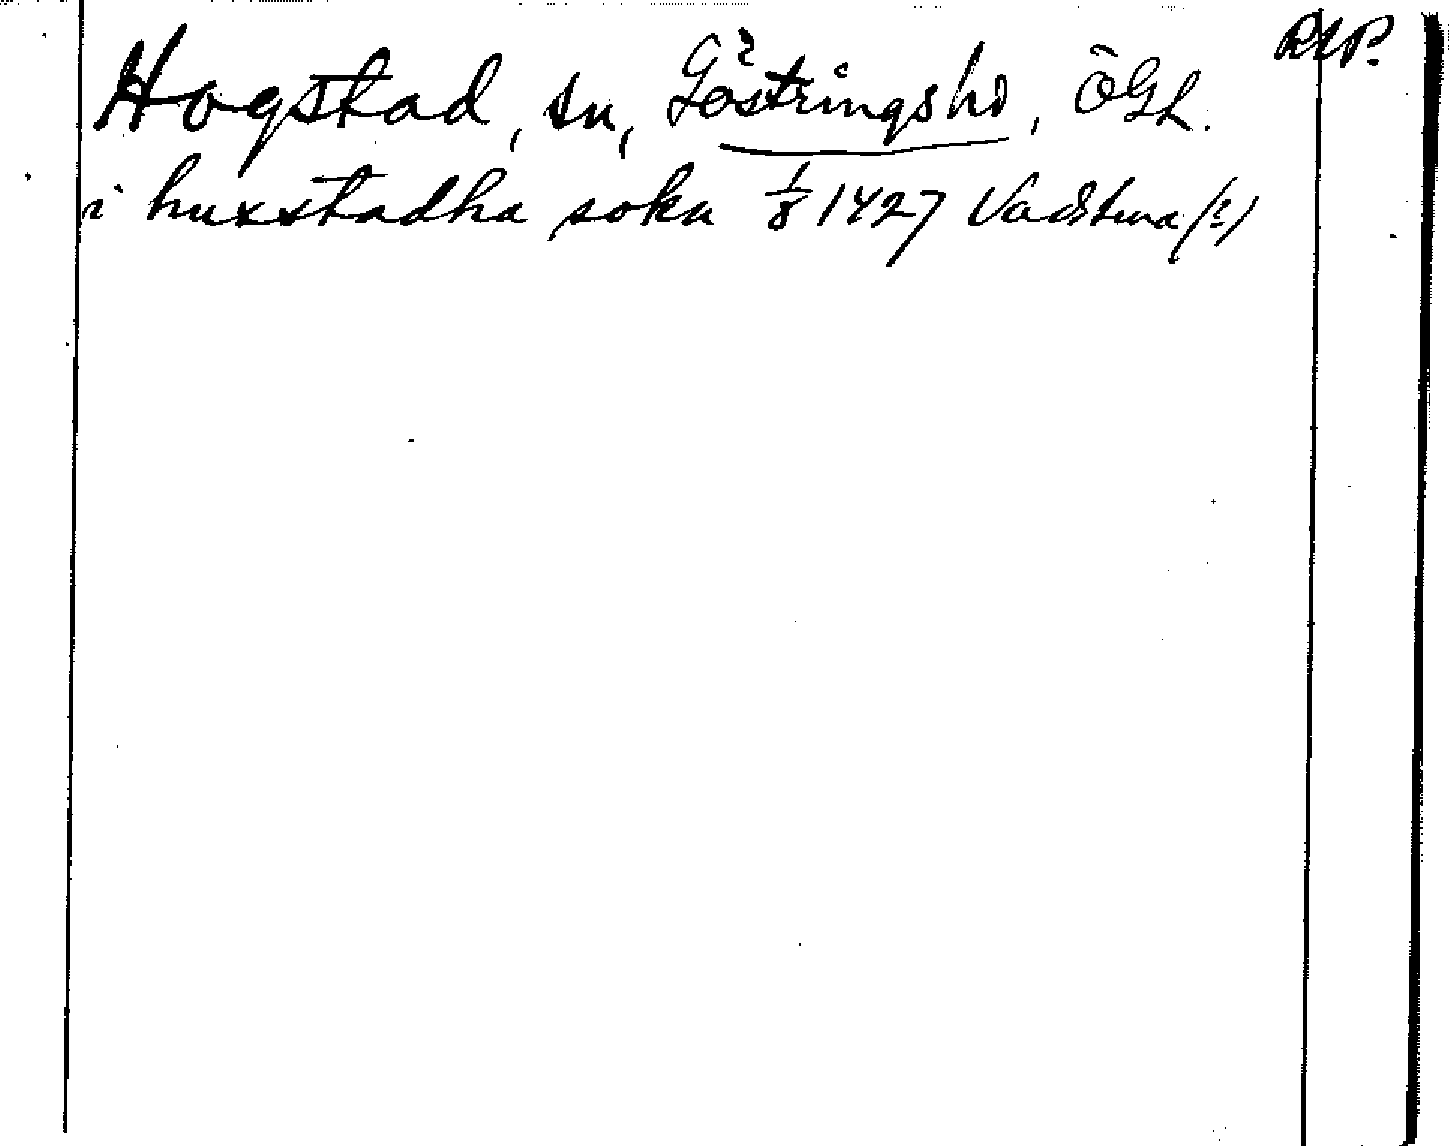 Hogstad, sn, Göstringshd, ÖGL. RAP.
i huxstadha sokn 1/8 1427 Vadstena (?)